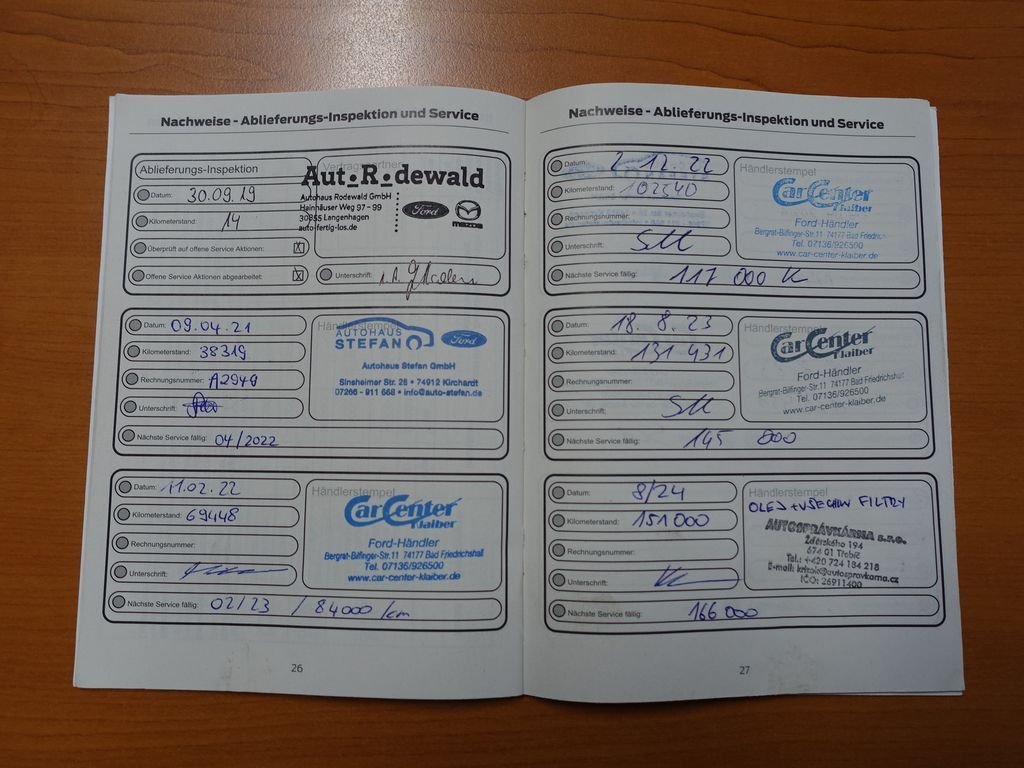 Nachweise - Ablieferungs-Inspektion und Service
Ablieferungs-Inspektion
Vertragspartner
Datum: 30.09.19
Kilometerstand: 14
Überprüft auf offene Service Aktionen: X
Offene Service Aktionen abgearbeitet: X
Aut•R•dewald
Autohaus Rodewald GmbH
Hainhäuser Weg 97 - 99
30855 Langenhagen
auto-fertig-los.de
Ford
mazda
Unterschrift:
Datum: 09.04.21
Kilometerstand: 38319
Rechnungsnummer: A2940
Unterschrift:
Nächste Service fällig: 04/2022
Händlerstempel
AUTOHAUS
STEFAN
Ford
Autohaus Stefan GmbH
Sinsheimer Str. 28 • 74912 Kirchardt
07266 - 911 668 • info@auto-stefan.de
Datum: 11.02.22
Kilometerstand: 69448
Rechnungsnummer:
Unterschrift:
Nächste Service fällig: 02/23 / 84000 km
Händlerstempel
CarCenter
Klaiber
Ford-Händler
Bergrat-Bilfinger-Str.11 74177 Bad Friedrichshall
Tel. 07136/926500
www.car-center-klaiber.de
26
Nachweise - Ablieferungs-Inspektion und Service
Datum: 2.12.22
Kilometerstand: 102340
Rechnungsnummer:
Unterschrift:
Nächste Service fällig: 117 000 K
Händlerstempel
CarCenter
Klaiber
Ford-Händler
Bergrat-Bilfinger-Str.11 74177 Bad Friedric
Tel. 07136/926500
www.car-center-klaiber.de
Datum: 18.8.23
Kilometerstand: 131 431
Rechnungsnummer:
Unterschrift:
Nächste Service fällig: 145 000
Händlerstempel
CarCenter
Klaiber
Ford-Händler
Bergrat-Bilfinger-Str.11 74177 Bad Friedrichshall
Tel. 07136/926500
www.car-center-klaiber.de
Datum: 8/24
Kilometerstand: 151000
Rechnungsnummer:
Unterschrift:
Nächste Service fällig: 166 000
Händlerstempel
OLEJ + VŠECHNY FILTRY
AUTOSPRÁVKÁRNA s.r.o.
Žďárského 194
674 01 Třebíč
Tel.: +420 724 184 218
E-mail: @autospravkarna.cz
IČO: 26911400
27